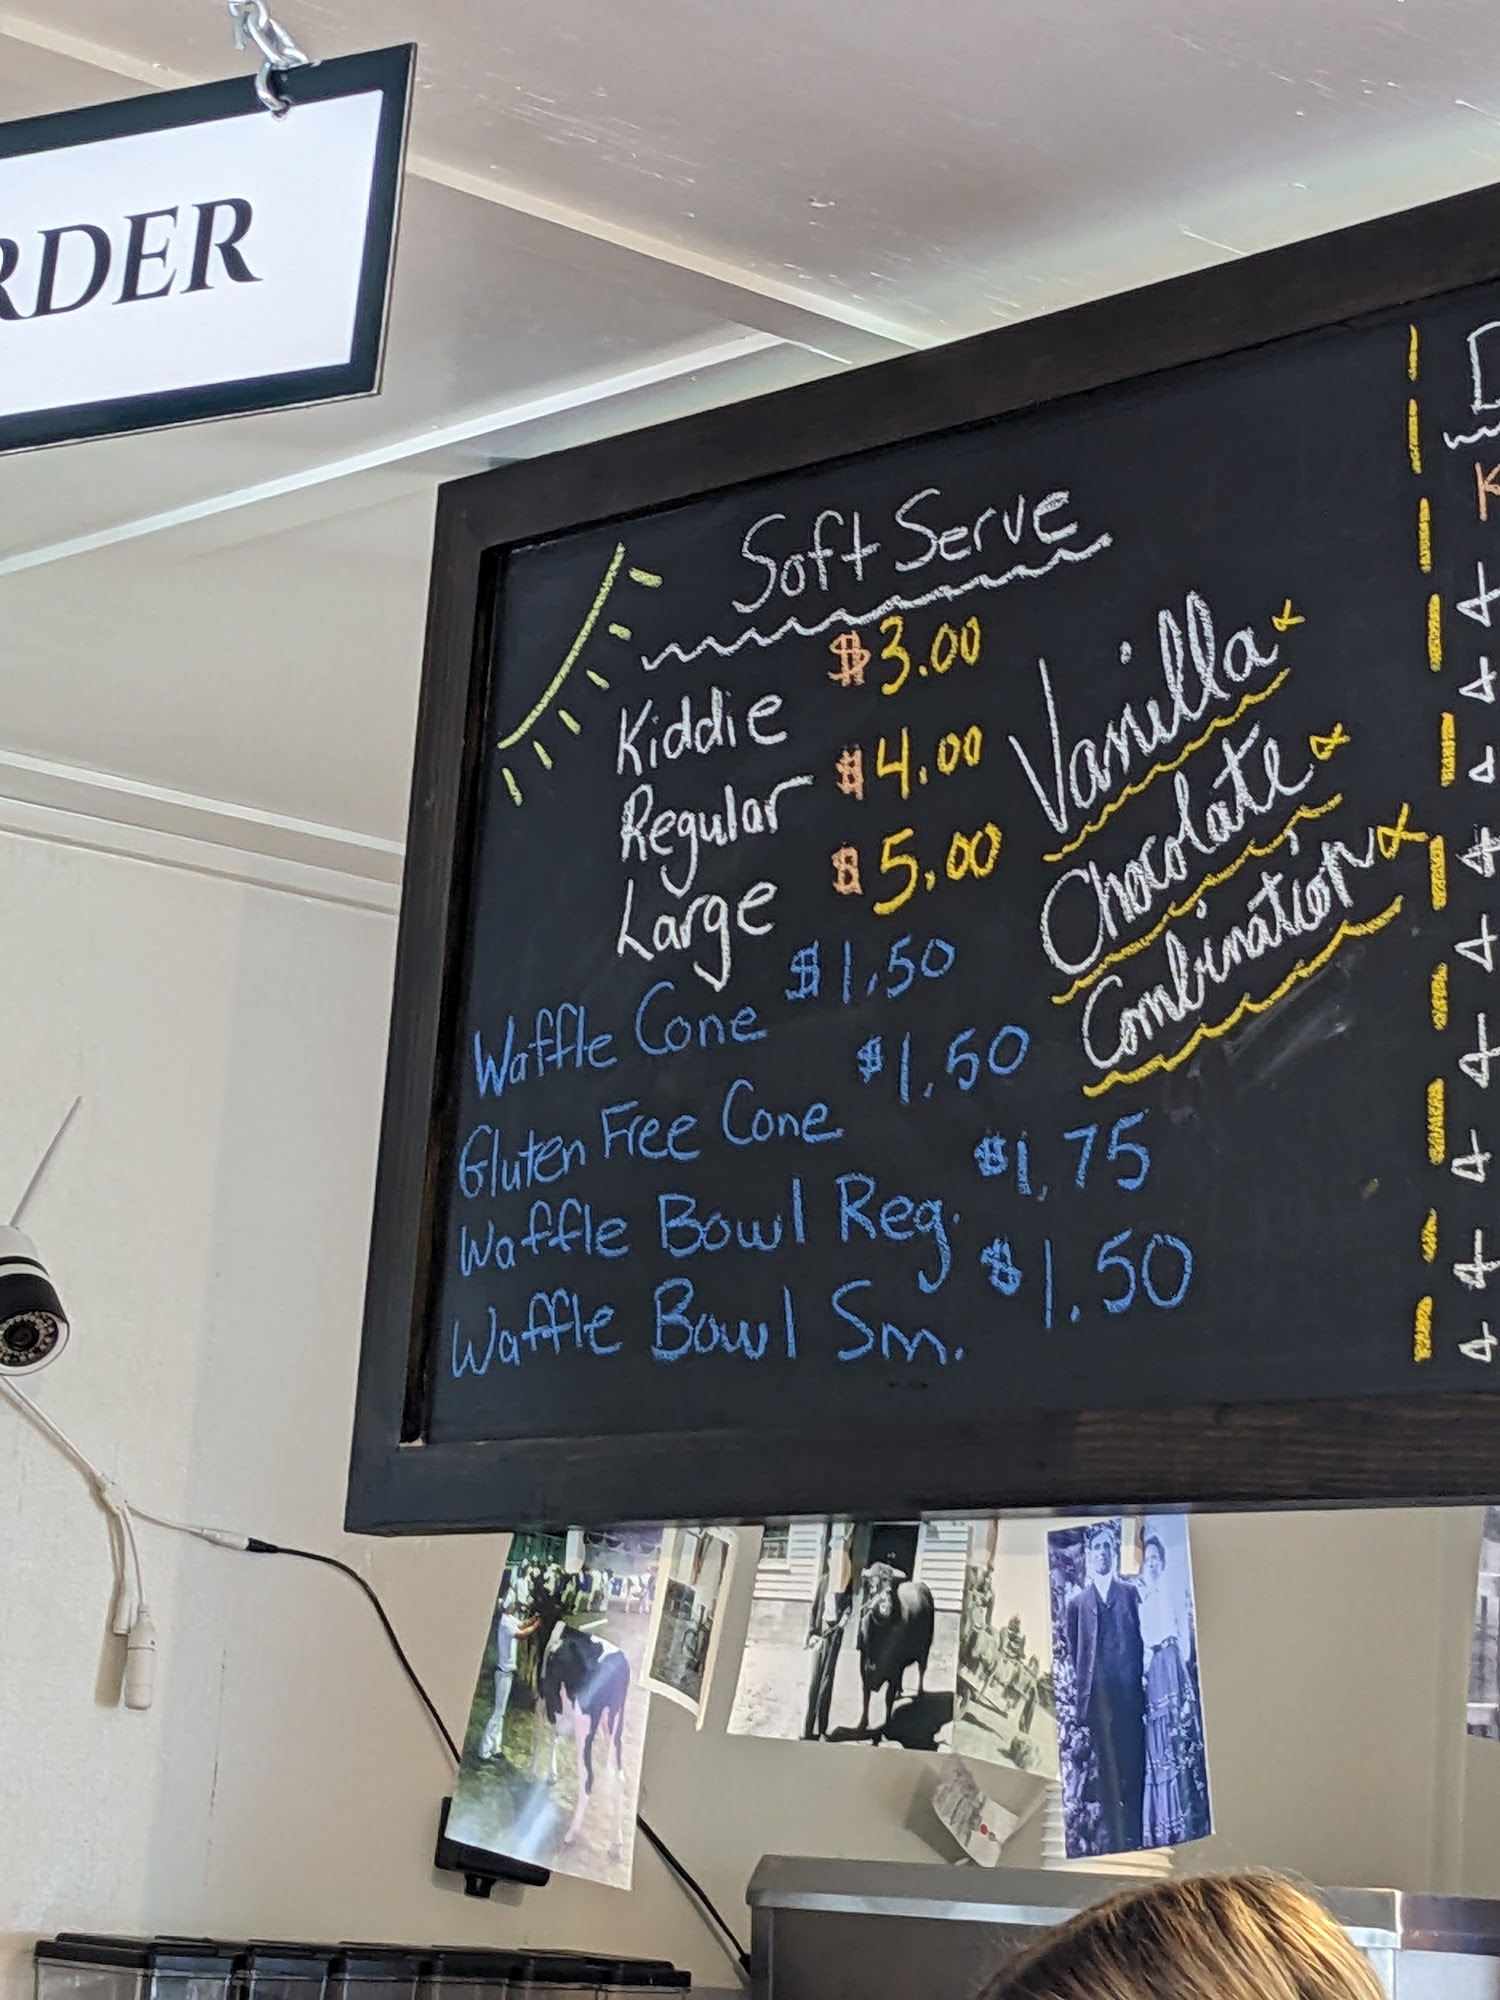 RDER
Soft Serve
Kiddie $3.00
Regular $4.00
Large $5.00
Waffle Cone $1.50
Gluten Free Cone $1.50
Waffle Bowl Reg. $1.75
Waffle Bowl Sm. $1.50
Vanilla
Chocolate
Combination